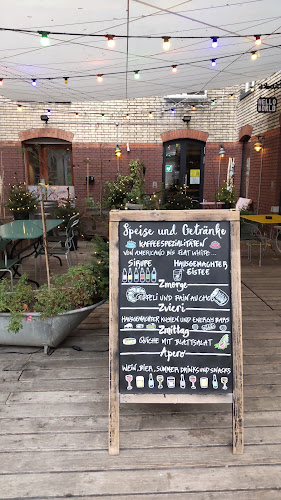 HELLO
WORLD
Speise und Getränke
KAFFEESPEZIALITÄTEN
VON AMERICANO BIS FLAT WHITE
SIRUPE
HAUSGEMACHTER
EISTEE
Zmorge
GIPFELI UND PAIN AU CHOC
Zvieri
HAUSGEMACHTER KUCHEN UND ENERGY BARS
Zmittag
QUICHE MIT BLATTSALAT
Apéro
WEIN, BIER, SUMMER DRINKS UND SNACKS